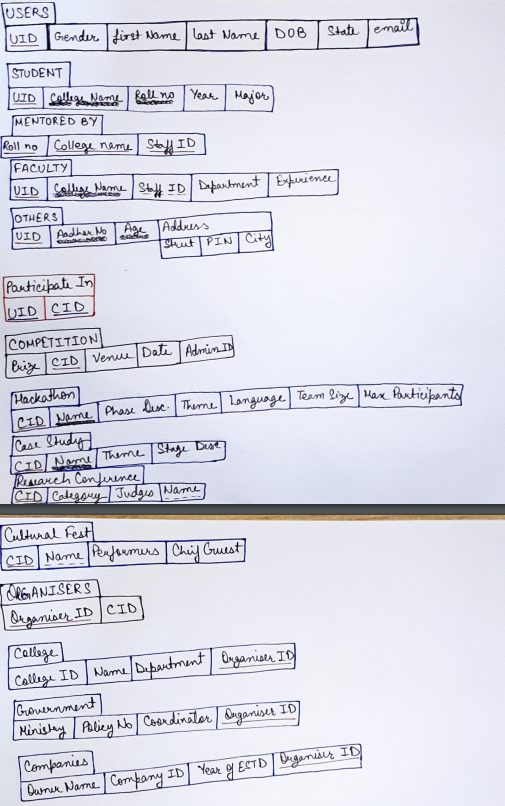 USERS
UID Gender first Name last Name DOB State email
STUDENT
UID College Name Roll no Year Major
MENTORED BY
Roll no College name Staff ID
FACULTY
UID College Name Staff ID Department Experience
OTHERS
UID Aadhar No Age Address
Street PIN City
Participate In
UID CID
COMPETITION
Prize CID Venue Date Admin ID
Hackathon
CID Name Phase Desc. Theme Language Team Size Max Participants
Case Study
CID Name Theme Stage Desc
Research Conference
CID Category Judges Name
Cultural Fest
CID Name Performers Chief Guest
ORGANISERS
Organiser ID CID
College
College ID Name Department Organiser ID
Government
Ministry Policy No Coordinator Organiser ID
Companies
Owner Name Company ID Year of ESTD Organiser ID